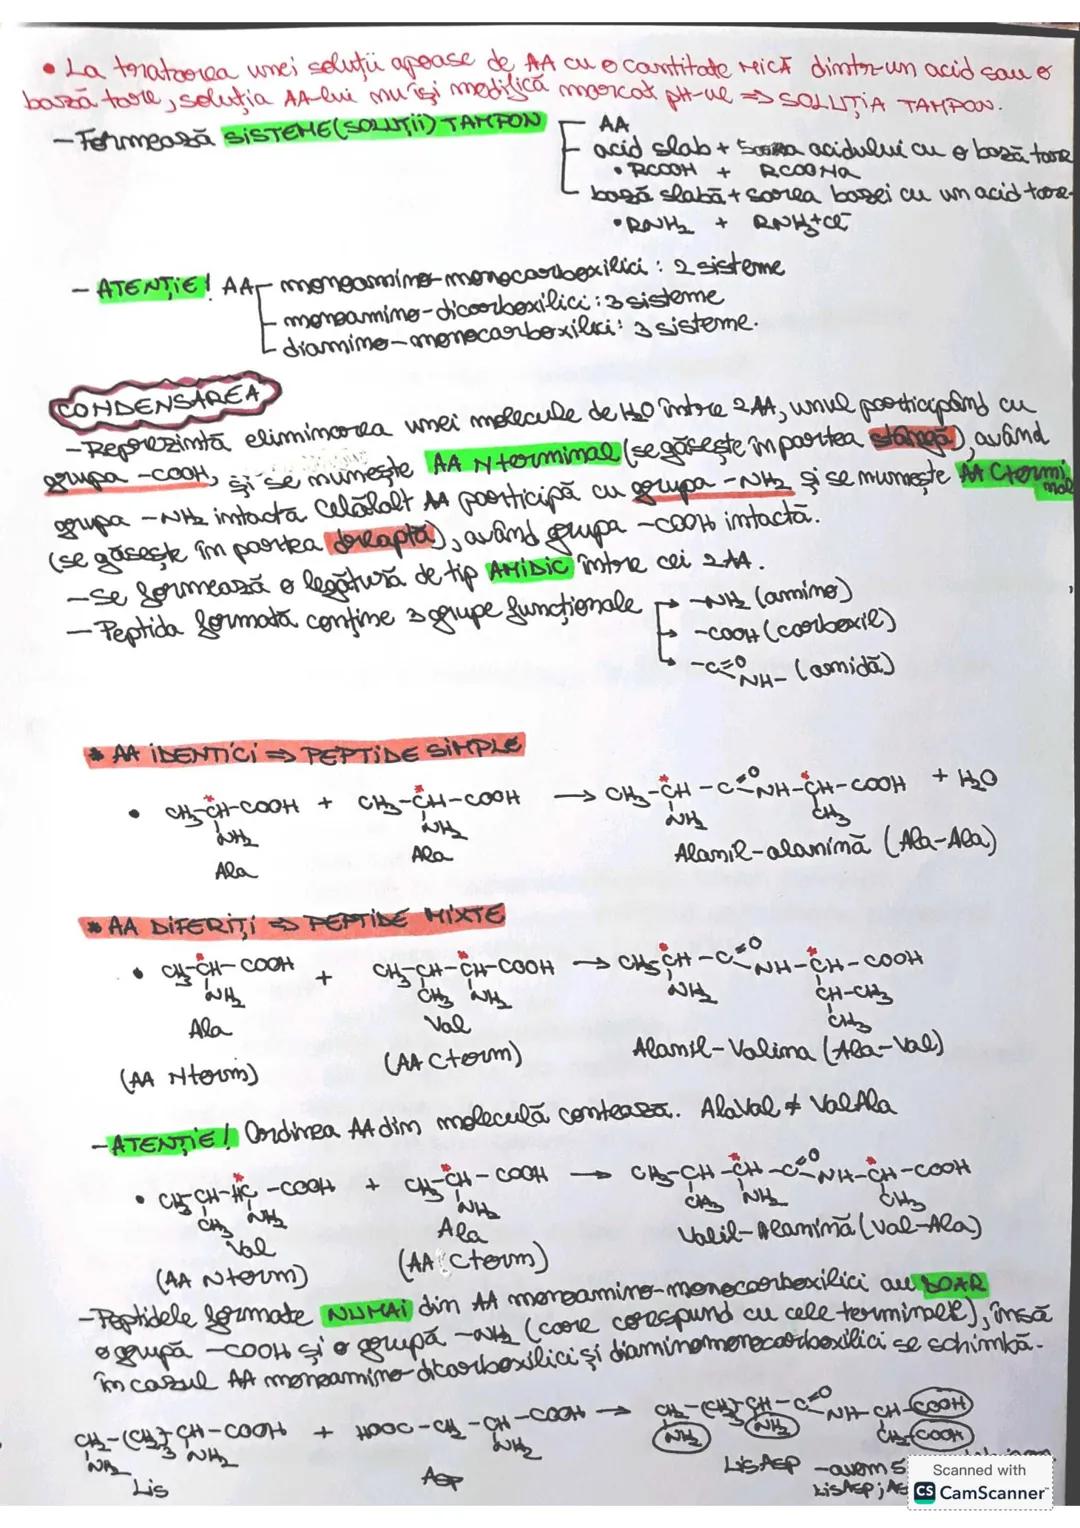 • La tratarea unei soluții apoase de AA cu o cantitate MICĂ dintr-un acid sau o
bază tare, soluția AA-lui nu își modifică marcat pH-ul => SOLUȚIA TAMPON.
- Formează SISTEME (SOLUȚII) TAMPON
AA
acid slab + sarea acidului cu o bază tare
• RCOOH + RCOONa
bază slabă + sarea bazei cu un acid tare
• RNH2 + RNH3+Cl-
- ATENȚIE! AA monoamino-monocarboxilici : 2 sisteme
monoamino-dicarboxilici : 3 sisteme
diamino-monocarboxilici : 3 sisteme.
CONDENSAREA
- Reprezintă eliminarea unei molecule de H2O între 2AA, unul participând cu
grupa -COOH, și se numește AA N terminal (se găsește în partea stângă), având
grupa -NH2 intactă. Celălalt AA participă cu grupa -NH2 și se numește AA C terminal
(se găsește în partea dreaptă), având grupa -COOH intactă.
- Se formează o legătură de tip AMIDIC între cei 2AA.
- Peptida formată conține 3 grupe funcționale → -NH2 (amino)
→ -COOH (carboxil)
→ -C=O NH- (amidă)
* AA IDENTICI => PEPTIDE SIMPLE
• CH3-CH-COOH + CH3-CH-COOH → CH3-CH-C=O NH-CH-COOH + H2O
NH2 NH2 NH2 CH3
Ala Ala Alanil-alanină (Ala-Ala)
* AA DIFERIȚI => PEPTIDE MIXTE
• CH3-CH-COOH + CH3-CH-CH-COOH → CH3-CH-C=O NH-CH-COOH
NH2 CH3 NH2 NH2 CH-CH3
CH3
Ala Val Alanil-Valina (Ala-Val)
(AA N term) (AA C term)
- ATENȚIE! Ordinea AA din moleculă contează. AlaVal ≠ ValAla
• CH3-CH-HC-COOH + CH3-CH-COOH → CH3-CH-CH-C=O NH-CH-COOH
CH3 NH2 NH2 CH3 NH2 CH3
Val Ala Valil-Alanină (Val-Ala)
(AA N term) (AA C term)
- Peptidele formate NUMAI din AA monoamino-monocarboxilici au DOAR
o grupă -COOH și o grupă -NH2 (care corespund cu cele terminale), însă
în cazul AA monoamino-dicarboxilici și diaminomonocarboxilici se schimbă.
CH2-(CH2)3-CH-COOH + HOOC-CH2-CH-COOH → CH2-(CH2)3-CH-C=O NH-CH-COOH
NH2 NH2 NH2 NH2 NH2 CH2-COOH
Lis Asp LisAsp - avem 5
LisAsp; As
Scanned with
CS CamScanner